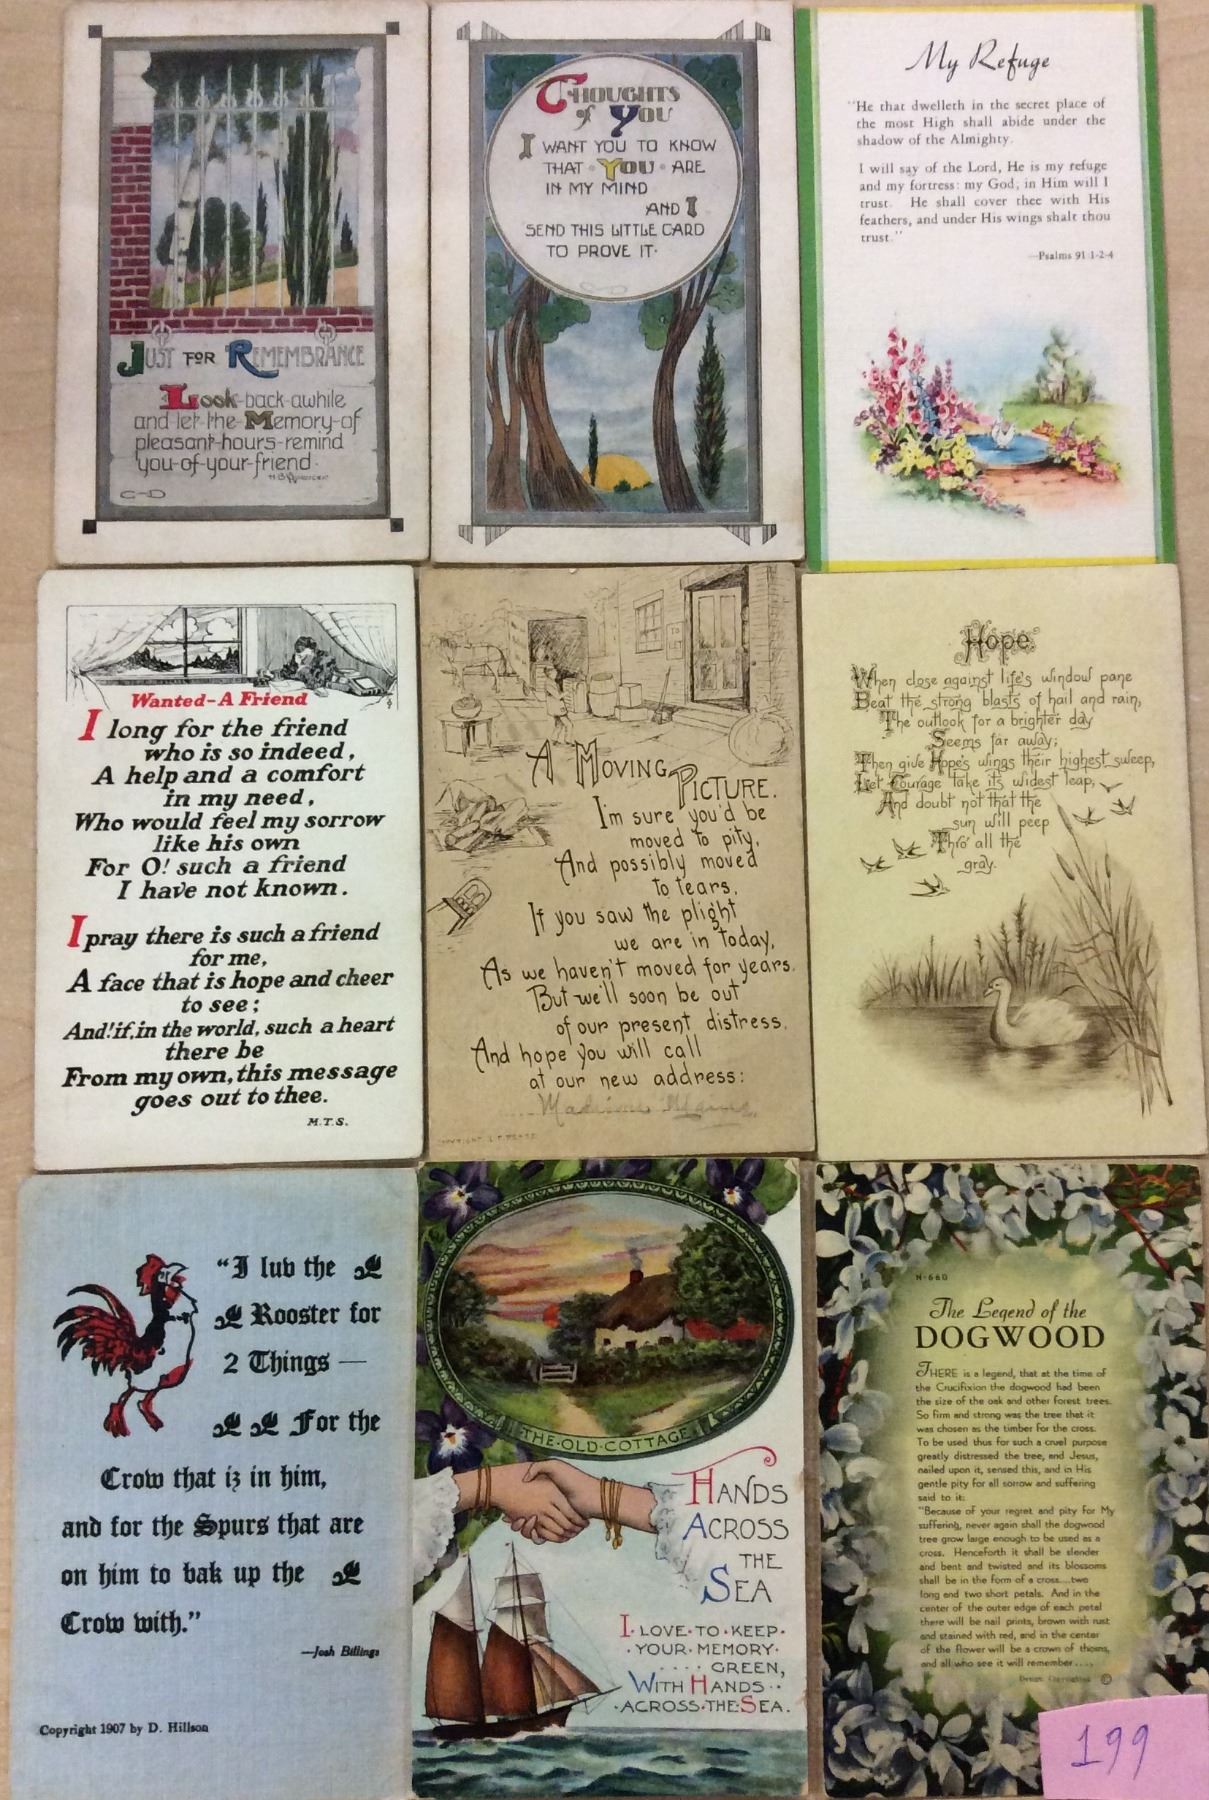 JUST FOR REMEMBRANCE
Look-back-awhile
and-let-the-Memory-of
pleasant-hours-remind
you-of-your-friend.
THOUGHTS
of YOU
I WANT YOU TO KNOW
THAT · YOU · ARE
IN MY MIND
AND I
SEND THIS LITTLE CARD
TO PROVE IT·
My Refuge
"He that dwelleth in the secret place of
the most High shall abide under the
shadow of the Almighty.
I will say of the Lord, He is my refuge
and my fortress: my God; in Him will I
trust. He shall cover thee with His
feathers, and under His wings shalt thou
trust."
—Psalms 91 1-2-4
Wanted-A Friend
I long for the friend
who is so indeed,
A help and a comfort
in my need,
Who would feel my sorrow
like his own
For O! such a friend
I have not known.
I pray there is such a friend
for me,
A face that is hope and cheer
to see;
And! if, in the world, such a heart
there be
From my own, this message
goes out to thee.
M.T.S.
A MOVING
PICTURE.
I'm sure you'd be
moved to pity,
And possibly moved
to tears,
If you saw the plight
we are in today,
As we haven't moved for years.
But we'll soon be out
of our present distress,
And hope you will call
at our new address:
Hope
When close against life's window pane
Beat the strong blasts of hail and rain,
The outlook for a brighter day
Seems far away;
Then give Hope's wings their highest sweep,
Let Courage take its widest leap,
And doubt not that the
sun will peep
Thro' all the
gray.
"I luv the
Rooster for
2 Things —
For the
Crow that iz in him,
and for the Spurs that are
on him to bak up the
Crow with."
—Josh Billings
Copyright 1907 by D. Hillson
THE·OLD·COTTAGE
HANDS
ACROSS
THE
SEA
I·LOVE·TO·KEEP·
·YOUR·MEMORY·
····GREEN,
WITH HANDS··
·ACROSS·THE·SEA.
N-660
The Legend of the
DOGWOOD
THERE is a legend, that at the time of
the Crucifixion the dogwood had been
the size of the oak and other forest trees.
So firm and strong was the tree that it
was chosen as the timber for the cross.
To be used thus for such a cruel purpose
greatly distressed the tree, and Jesus,
nailed upon it, sensed this, and in His
gentle pity for all sorrow and suffering
said to it:
"Because of your regret and pity for My
suffering, never again shall the dogwood
tree grow large enough to be used as a
cross. Henceforth it shall be slender
and bent and twisted and its blossoms
shall be in the form of a cross....two
long and two short petals. And in the
center of the outer edge of each petal
there will be nail prints, brown with rust
and stained with red, and in the center
of the flower will be a crown of thorns,
and all who see it will remember....
Design Copyrighted ©
199